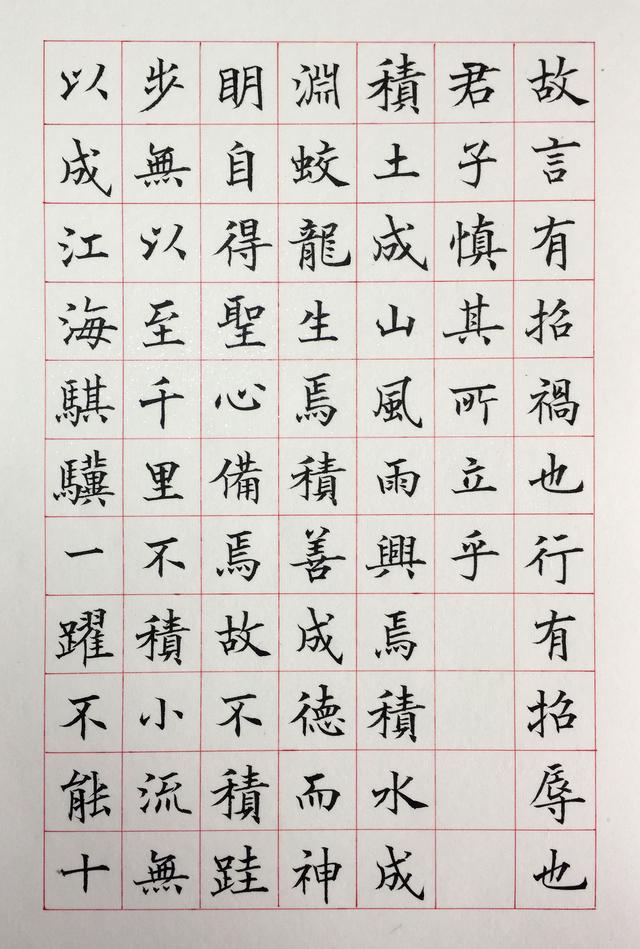 故言有招禍也行有招辱也
君子慎其所立乎
積土成山風雨興焉積水成
淵蛟龍生焉積善成德而神
明自得聖心備焉故不積跬
步無以至千里不積小流無
以成江海騏驥一躍不能十